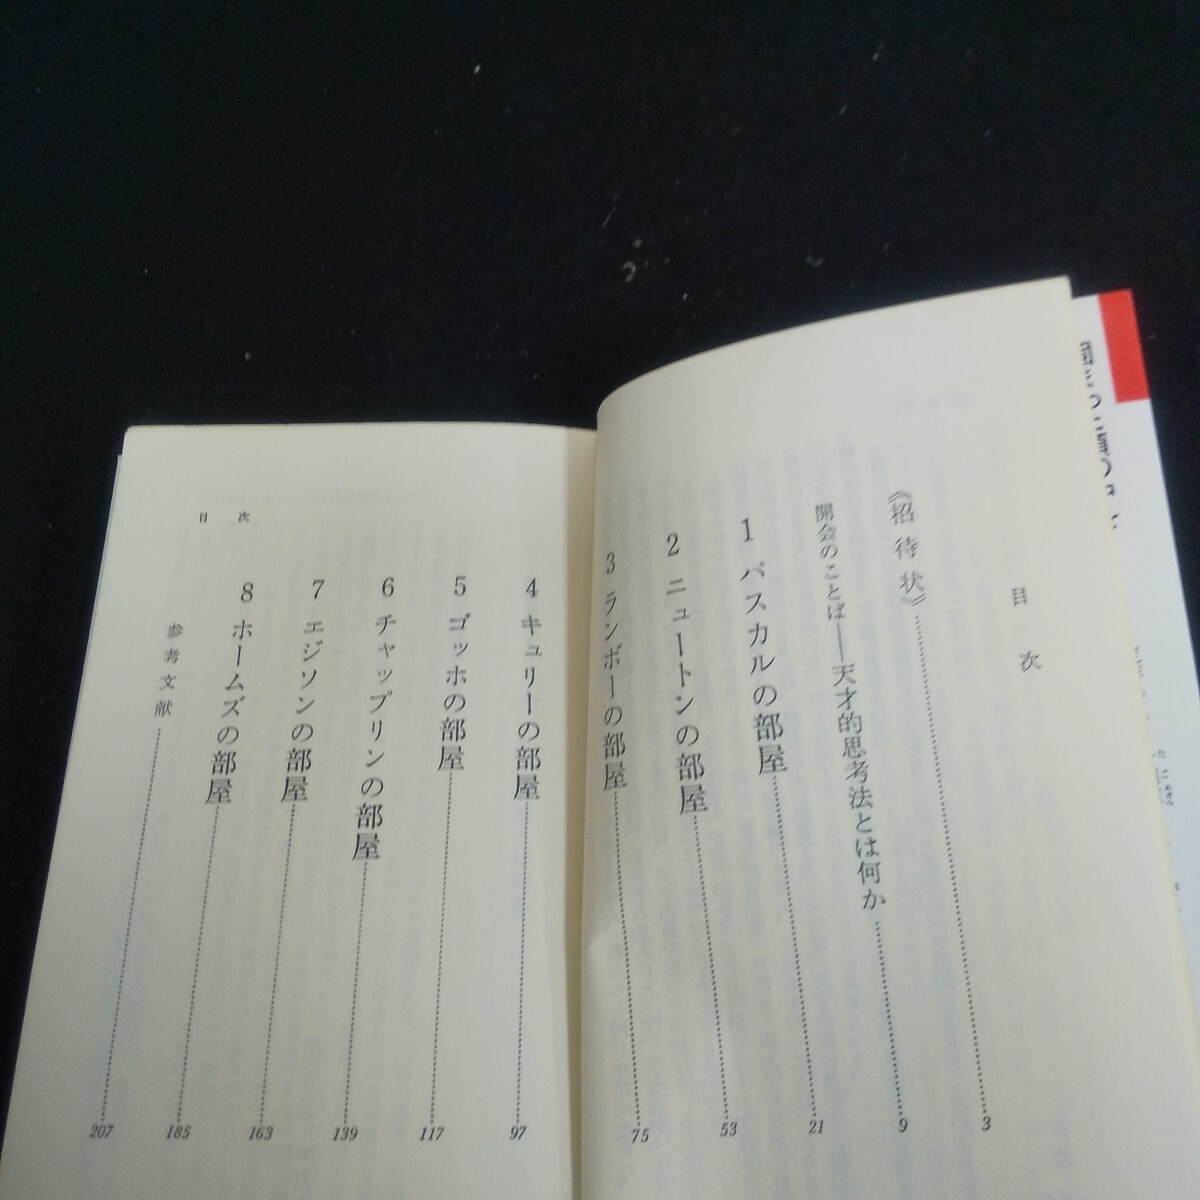 目次
《招待状》……3
開会のことば――天才的思考法とは何か……9
1 パスカルの部屋……21
2 ニュートンの部屋……53
3 ランボーの部屋……75
4 キュリーの部屋……97
5 ゴッホの部屋……117
6 チャップリンの部屋……139
7 エジソンの部屋……163
8 ホームズの部屋……185
参考文献……207
目次